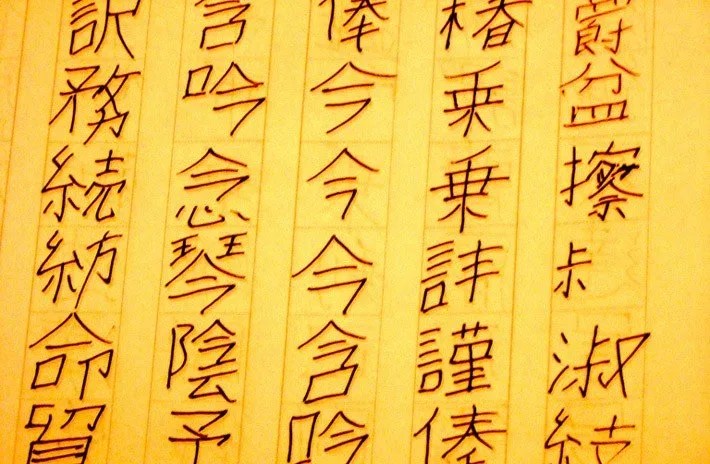 爵盆擦淑
椿乗乗謹俸
俸今今今含吟
含吟念琴陰予
訳務続紡命貿